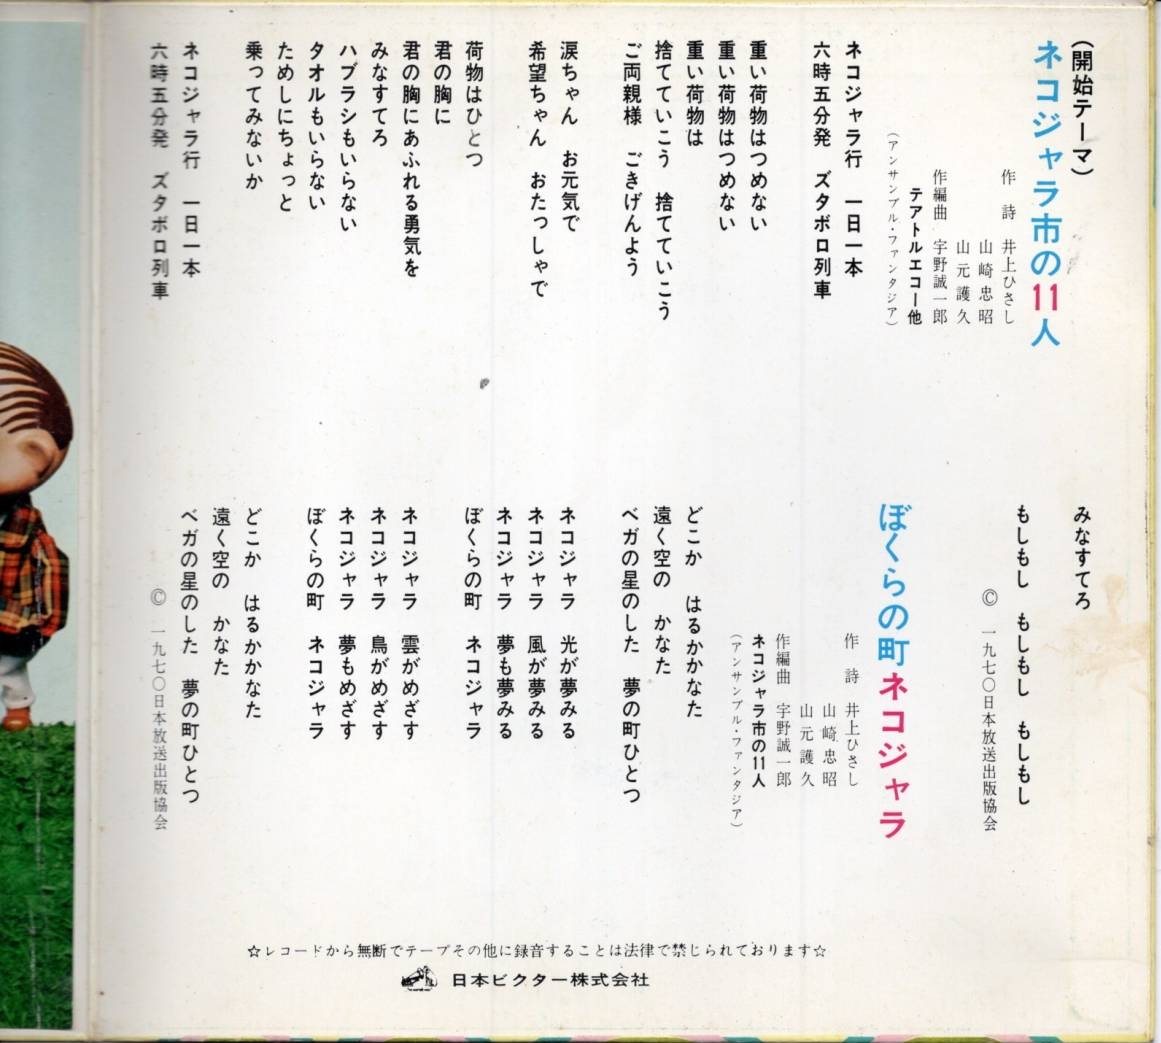 (開始テーマ)
ネコジャラ市の11人
作 詩 井上ひさし
山崎忠昭
山元護久
作編曲 宇野誠一郎
テアトルエコー他
(アンサンブル・ファンタジア)
ネコジャラ行 一日一本
六時五分発 ズタボロ列車
重い荷物はつめない
重い荷物はつめない
重い荷物は
捨てていこう 捨てていこう
ご両親様 ごきげんよう
涙ちゃん お元気で
希望ちゃん おたっしゃで
荷物はひとつ
君の胸に
君の胸にあふれる勇気を
みなすてろ
ハブラシもいらない
タオルもいらない
ためしにちょっと
乗ってみないか
ネコジャラ行 一日一本
六時五分発 ズタボロ列車
みなすてろ
もしもし もしもし もしもし
© 一九七〇日本放送出版協会
ぼくらの町ネコジャラ
作 詩 井上ひさし
山崎忠昭
山元護久
作編曲 宇野誠一郎
ネコジャラ市の11人
(アンサンブル・ファンタジア)
どこか はるかかなた
遠く空の かなた
ベガの星のした 夢の町ひとつ
ネコジャラ 光が夢みる
ネコジャラ 風が夢みる
ネコジャラ 夢も夢みる
ぼくらの町 ネコジャラ
ネコジャラ 雲がめざす
ネコジャラ 鳥がめざす
ネコジャラ 夢もめざす
ぼくらの町 ネコジャラ
どこか はるかかなた
遠く空の かなた
ベガの星のした 夢の町ひとつ
© 一九七〇日本放送出版協会
☆レコードから無断でテープその他に録音することは法律で禁じられております☆
日本ビクター株式会社